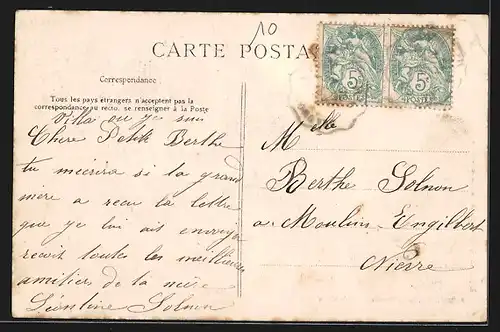 10
CARTE POSTA
Correspondance
Tous les pays étrangers n'acceptent pas la
correspondance au recto, se renseigner à la Poste
Villa ou je suis
Chere Petite Berthe
tu mécrira si la grand
mère a recu la lettre
que je lui ait envoyer
recoit toutes les meilleures
amitiers de la
Léontine Solnon
5c 5c
POSTE
Mlle
Berthe Solnon
a Moulin Engilbert
Nievre